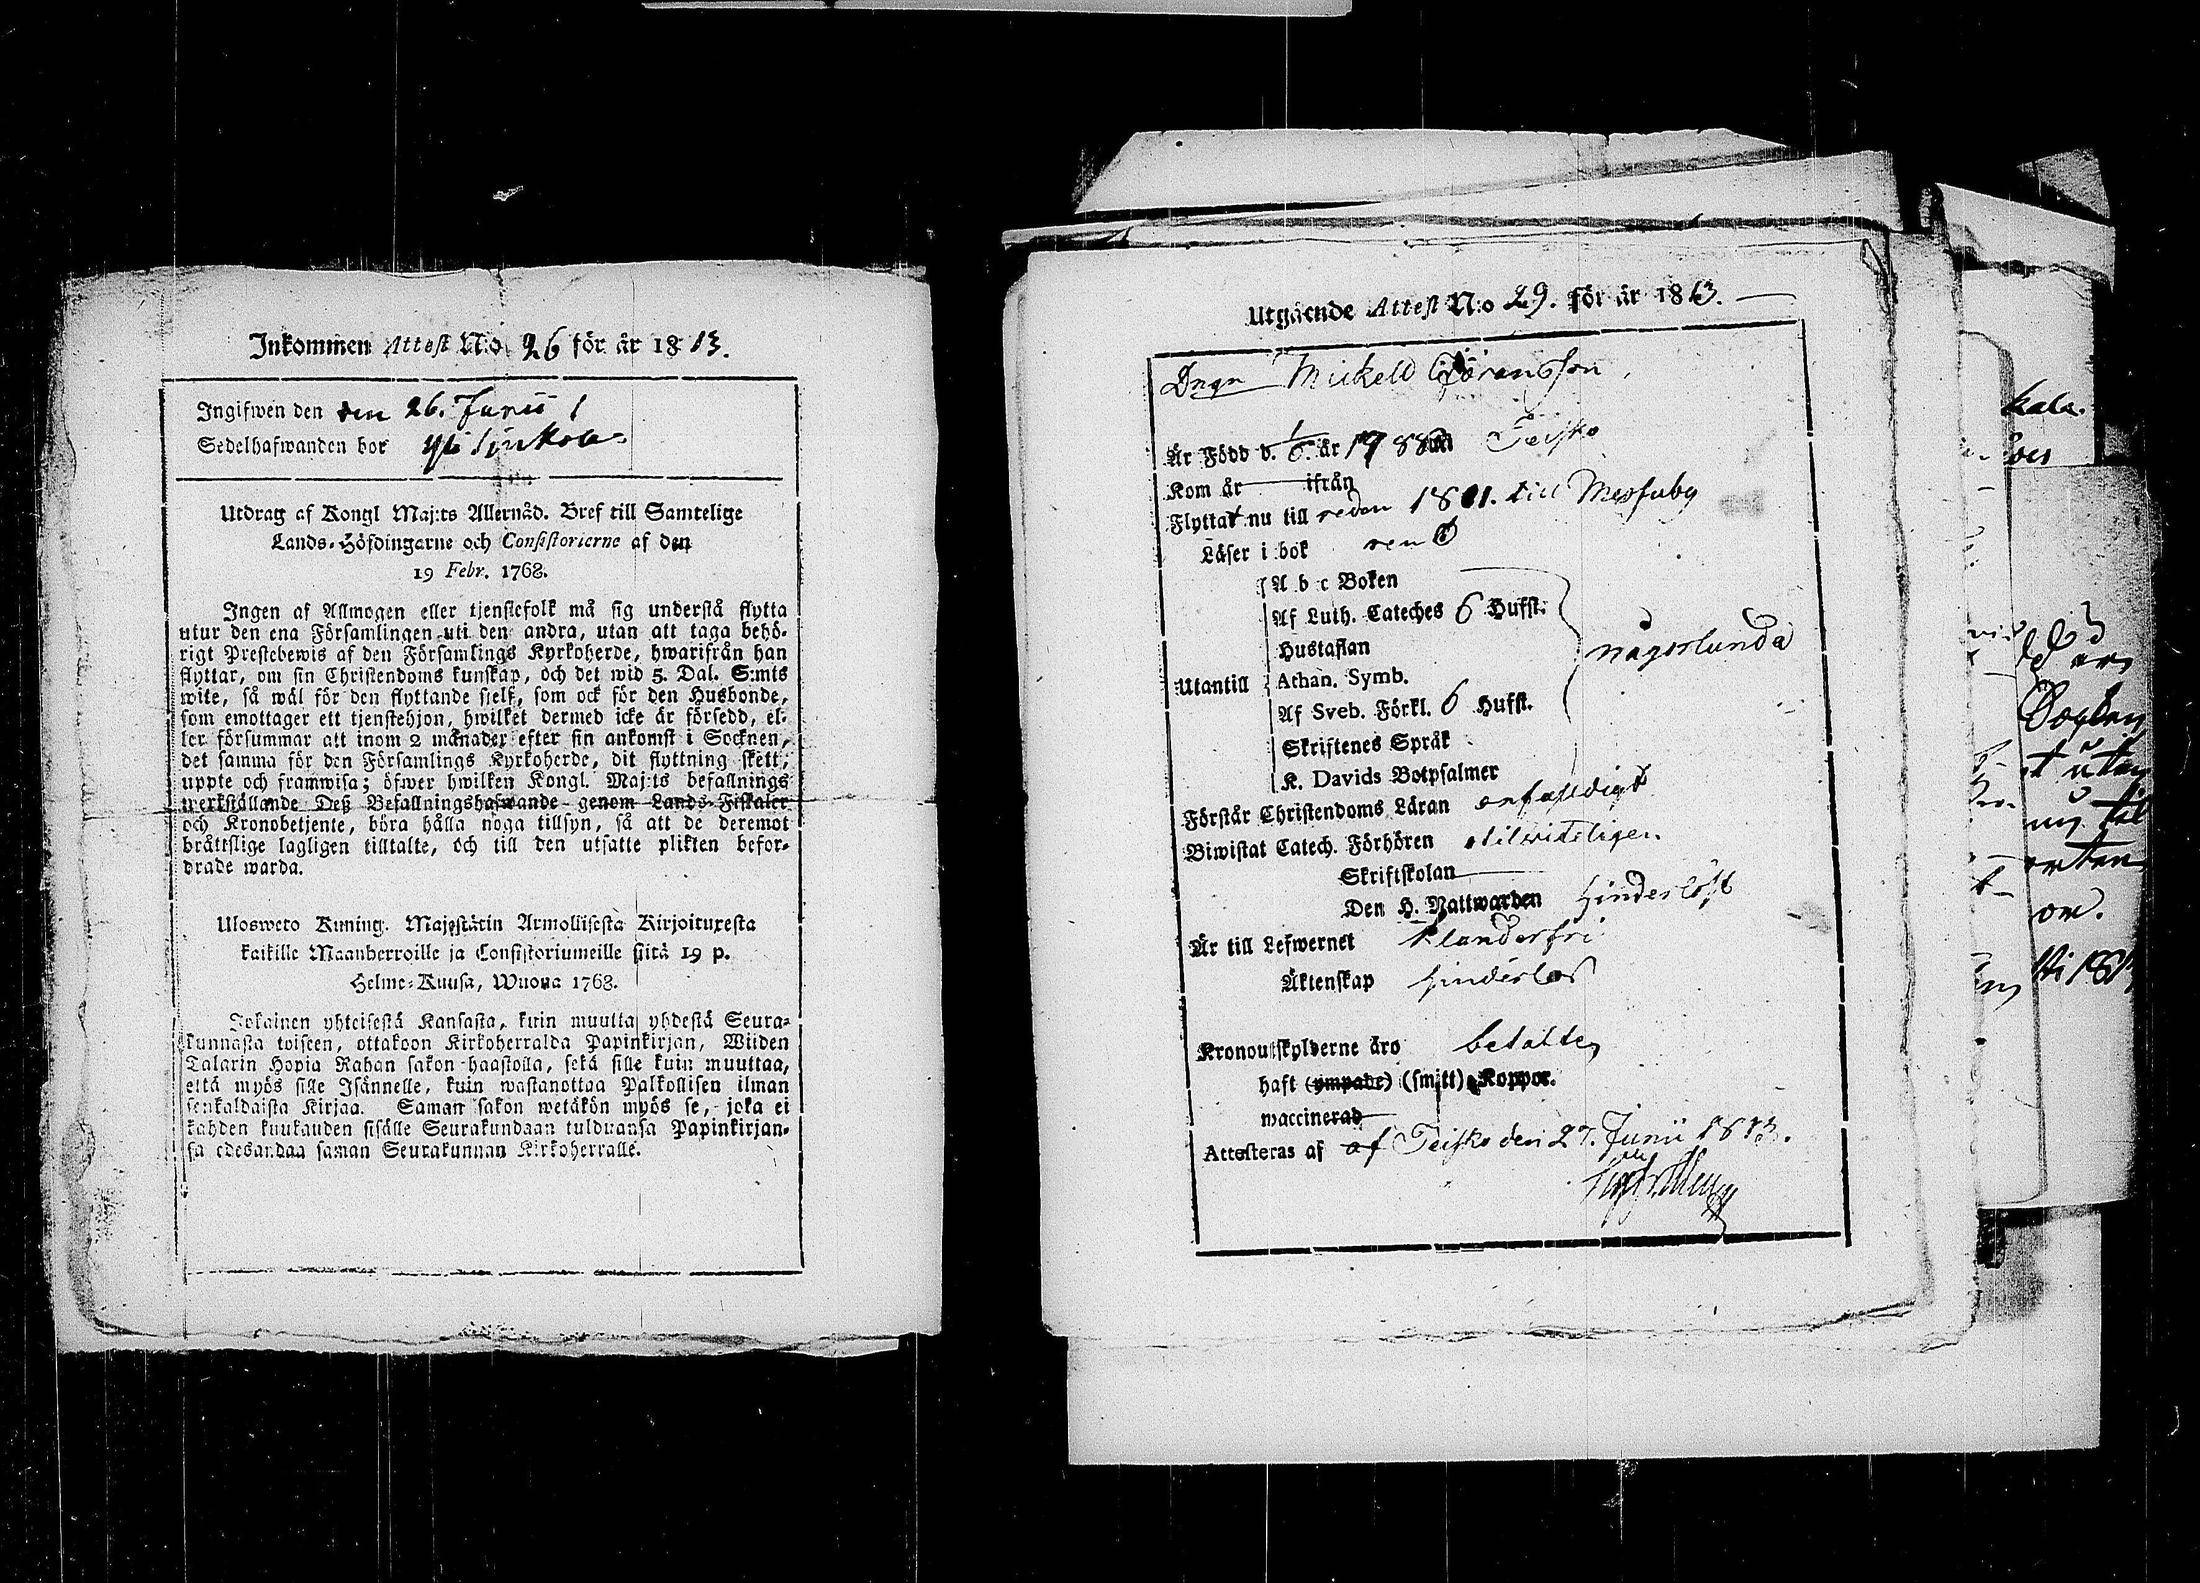 Inkommen Attest N:o 26 för år 1813.
Ingifwen den den 26. Junii
Sedelhafwanden bor
Utdrag af Kongl Maj:ts Allernåd. Bref till Samtelige
Lands-Höfdingarne och Consistorierne af den
19 Febr. 1768.
Ingen af Allmogen eller tjenstefolk må sig understå flytta
utur den ena Församlingen uti den andra, utan att taga behö-
rigt Prestebewis af den Församlings Kyrkoherde, hwarifrån han
flyttar, om sin Christendoms kunskap, och det wid 5. Dal. S:mts
wite, så wäl för den flyttande sielf, som ock för den Husbonde,
som emottager ett tjenstehjon, hwilket dermed icke är försedd, el-
ler försummar att inom 2 månader efter sin ankomst i Socknen,
det samma för den Församlings Kyrkoherde, dit flyttning skett,
uppte och framwisa; öfwer hwilken Kongl. Maj:ts befallnings
werkställande Deß Befallningshafwande genom Lands-Fiskaler
och Kronobetjente, böra hålla noga tillsyn, så att de deremot
bråttslige lagligen tilltalte, och till den utsatte plikten befor-
drade warda.
Ulosweto Kuning. Majestätin Armollisesta Kirjoituxesta
kaikille Maanherroille ja Consistoriumeille siitä 19 p.
Helme-Kuusa, Wuona 1768.
Jokainen yhteisestä Kansasta, kuin muutta yhdestä Seura-
kunnasta toiseen, ottakoon Kirkoherralda Papinkirjan, Wiiden
Talarin Hopia Rahan sakon haastolla, sekä sille kuin muuttaa,
että myös sille Isännelle, kuin wastanottaa Palkollisen ilman
senkaldaista Kirjaa. Saman sakon wetäkön myös se, joka ei
kahden kuukauden sisälle Seurakundaan tulduansa Papinkirjan-
sa edesandaa saman Seurakunnan Kirkoherralle.
Utgående Attest N:o 29. för år 1813.
Drgn Mickell Göransson
Är Född d. 1/6. år 1788 uti Teisko
Kom år ifrån
Flyttat nu till redan 1811. till Messuby
Läser i bok rent
A b c Boken
Af Luth. Cateches 6 Hufst.
Hustaflan
någorlunda
Utantill Athan. Symb.
Af Sveb. Förkl. 6 Hufst.
Skriftenes Språk
K. Davids Botpsalmer
Förstår Christendoms Läran enfaldigt
Biwistat Catech. Förhören
Skriftskolan
Den H. Nattwarden hinderlöst
Är till Lefwernet klanderfri
Äktenskap hinderlös
Kronoutskylderne äro betalte
haft (ympade) (smitt) Koppor.
waccinerad
Attesteras af af Teisko den 27. Junii 1813.
kala.